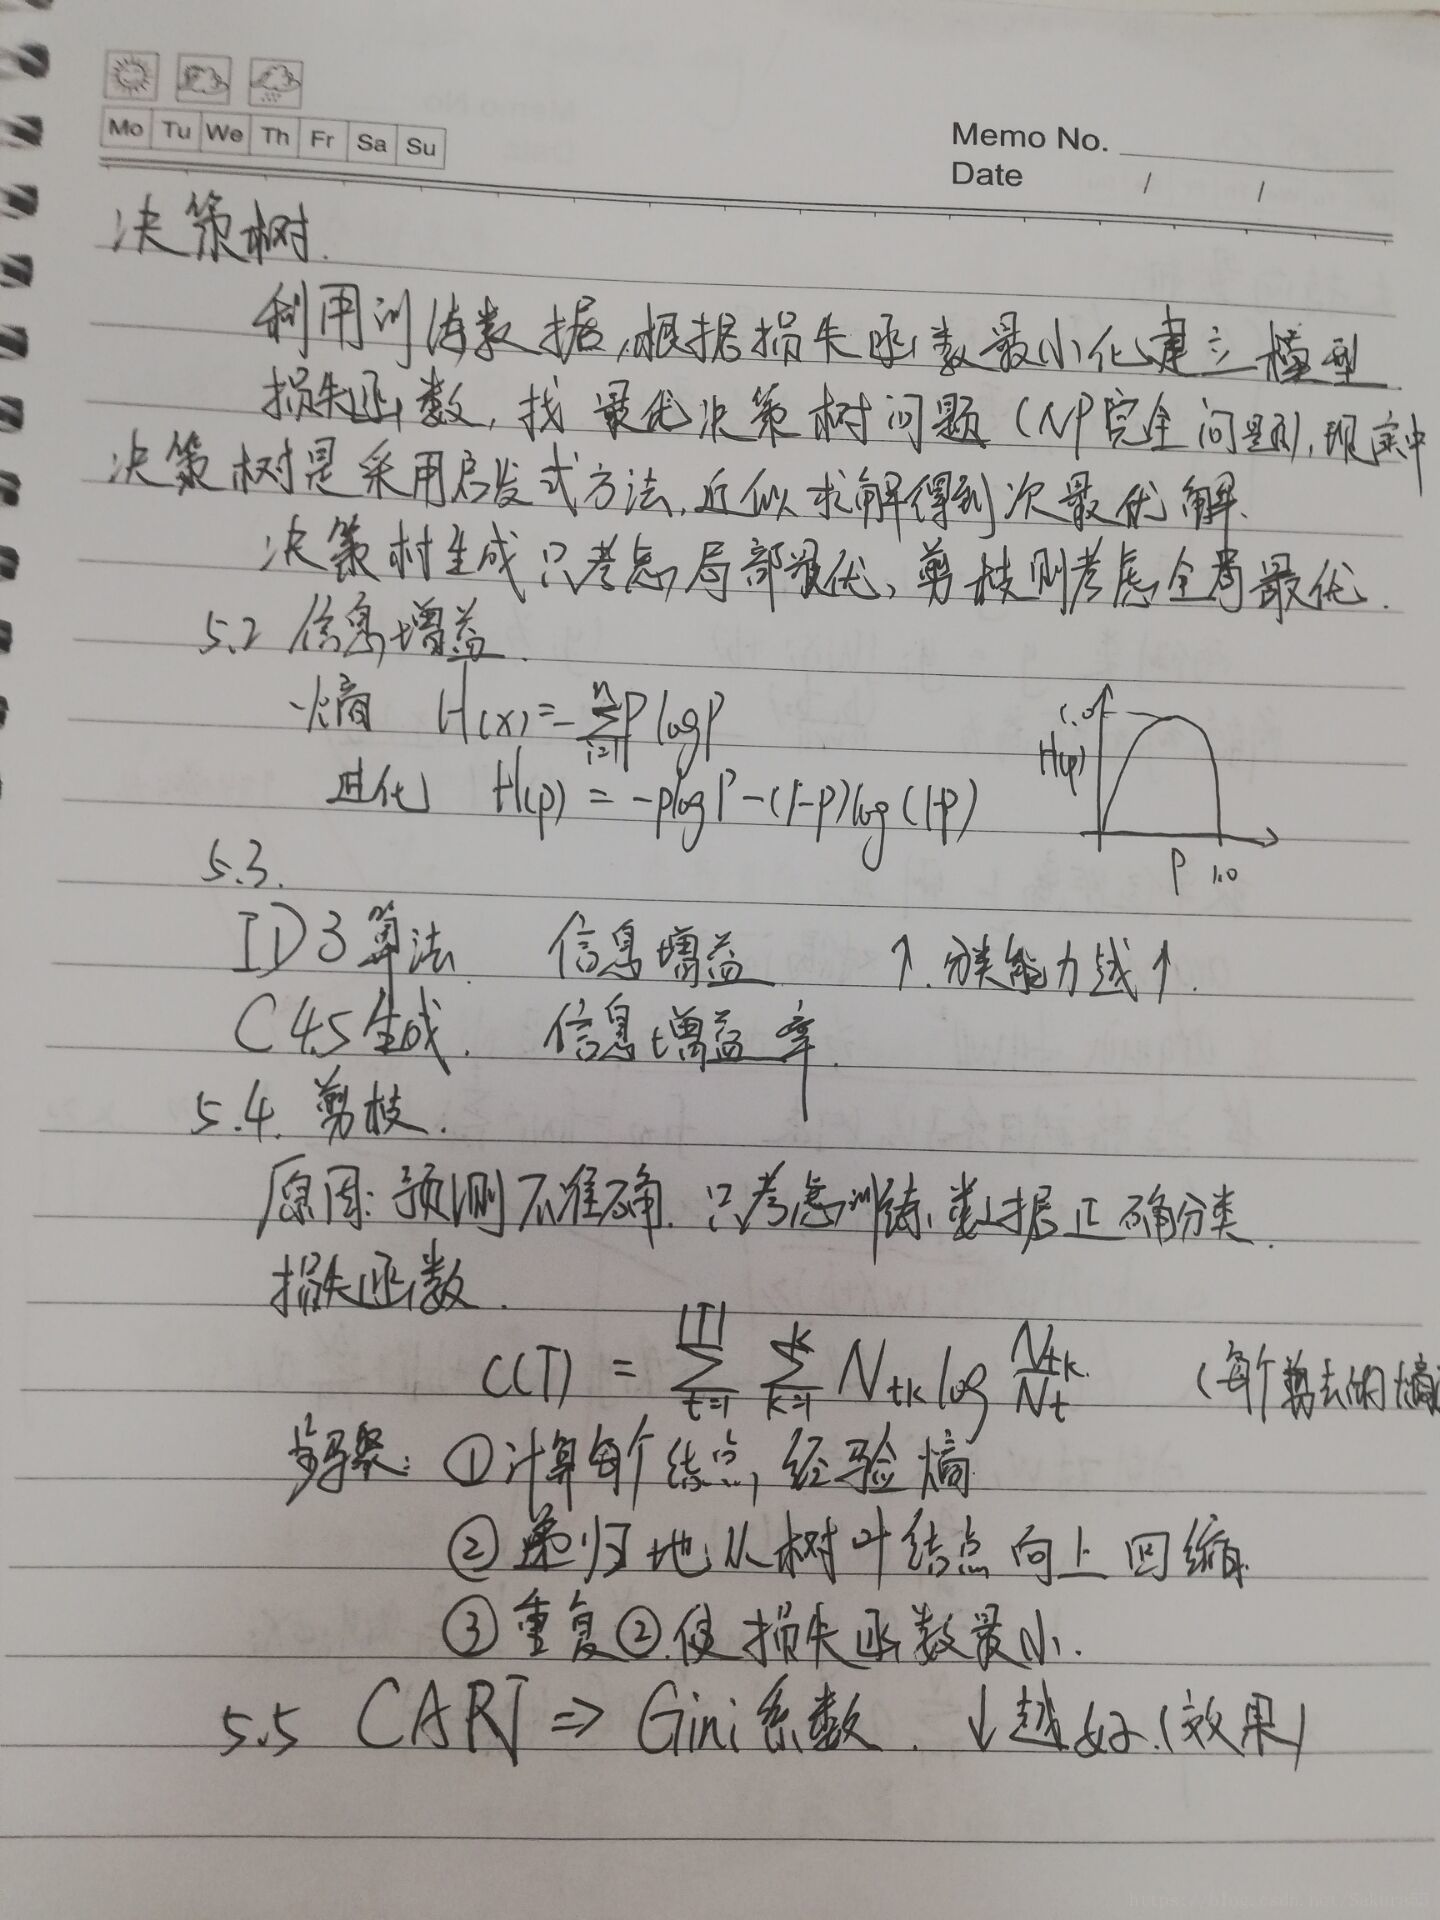 Mo Tu We Th Fr Sa Su
Memo No.
Date / /
决策树.
利用训练数据,根据损失函数最小化建立模型.
损失函数,找最优决策树问题(NP完全问题),现实中
决策树是采用启发式方法,近似求解得到次最优解.
决策树生成只考虑局部最优,剪枝则考虑全局最优.
5.2 信息增益.
熵 H(X)=-∑_{i=1}^{n}P logP
H(p) = -plogP-(1-p)log(1-p)
1.0
H(p)
P 1.0
5.3.
ID3算法. 信息增益 ↑. 分类能力越↑.
C4.5生成. 信息增益率.
5.4. 剪枝.
原因:预测不准确. 只考虑训练数据正确分类.
损失函数.
C(T) = ∑_{t=1}^{|T|} ∑_{k=1}^{k} N_{tk} log N_{tk}/N_t (每个剪去的熵
步骤: ①计算每个结点,经验熵
②递归地从树叶结点向上回缩.
③重复②.使损失函数最小.
5.5 CART => Gini系数. ↓越好.(效果)